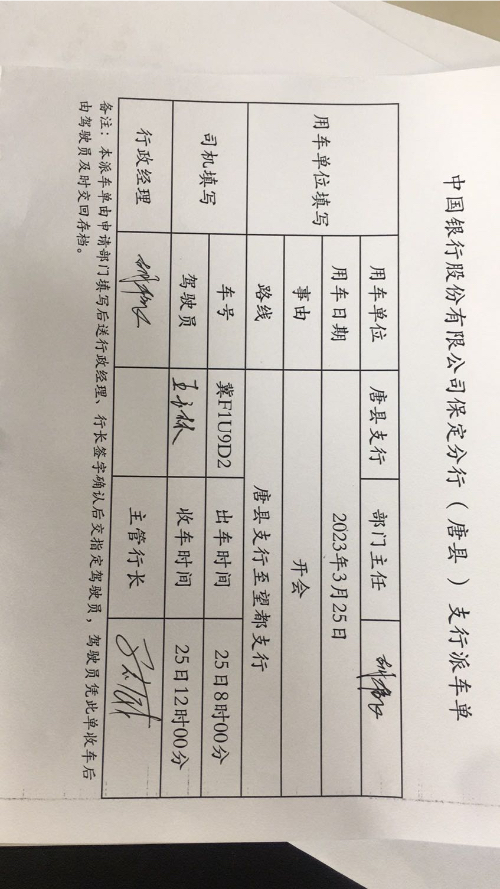 中国银行股份有限公司保定分行（唐县 ）支行派车单
用车单位填写 用车单位 唐县支行 部门主任
用车日期 2023年3月25日
事由 开会
路线 唐县支行至望都支行
司机填写 车号 冀F1U9D2 出车时间 25日8时00分
驾驶员 收车时间 25日12时00分
行政经理 主管行长
备注：本派车单由申请部门填写后送行政经理、行长签字确认后交指定驾驶员，驾驶员凭此单收车后
由驾驶员及时交回存档。